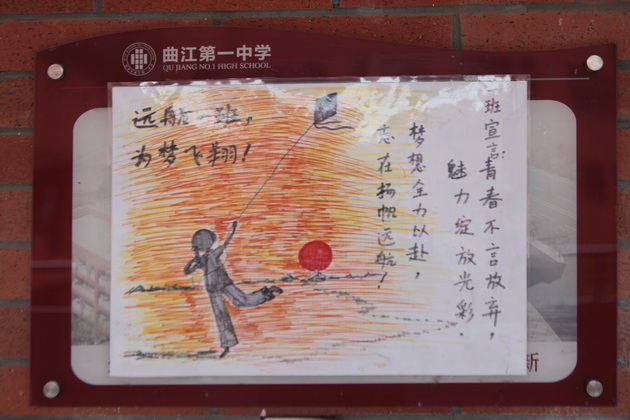 曲江第一中学
QU JIANG NO.1 HIGH SCHOOL
远航一班，
为梦飞翔！
班宣言：青春不言放弃，
魅力绽放光彩.
梦想全力以赴，
志在扬帆远航！
新